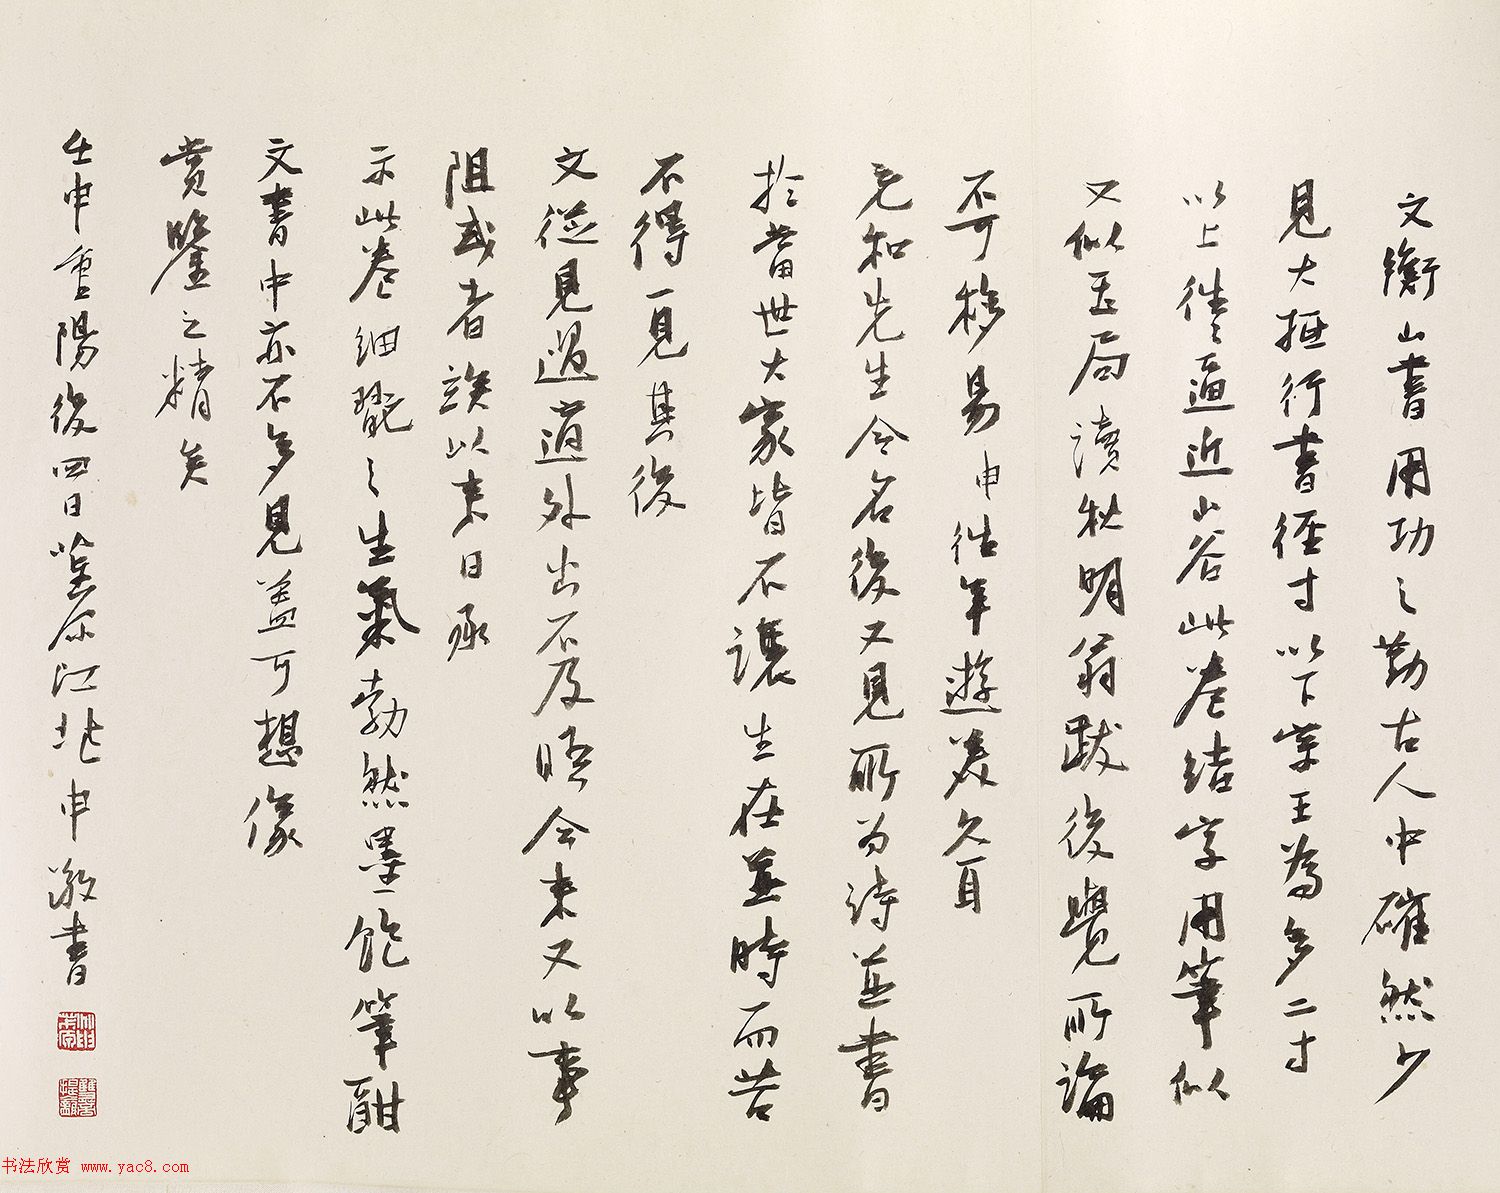 文衡山書用功之勤古人中確然少
見大抵行書徑寸以下學王為多二寸
以上往往逼近山谷此卷結字用筆似
又似玉局讀秋明翁跋後覺所論
不可移易申往年遊美久耳
元和先生令名後又見所為詩並書
於當世大家皆不讓生在並時而苦
不得一見其後
文從見過適外出不及晤会来又以事
阻或者誒以来日承
示此卷細翫之生氣勃然墨飽筆酣
文書中亦不多見益可想像
賞鑒之精矣
壬申重陽後四日茔原江兆申敬書
书法欣赏 www.yac8.com